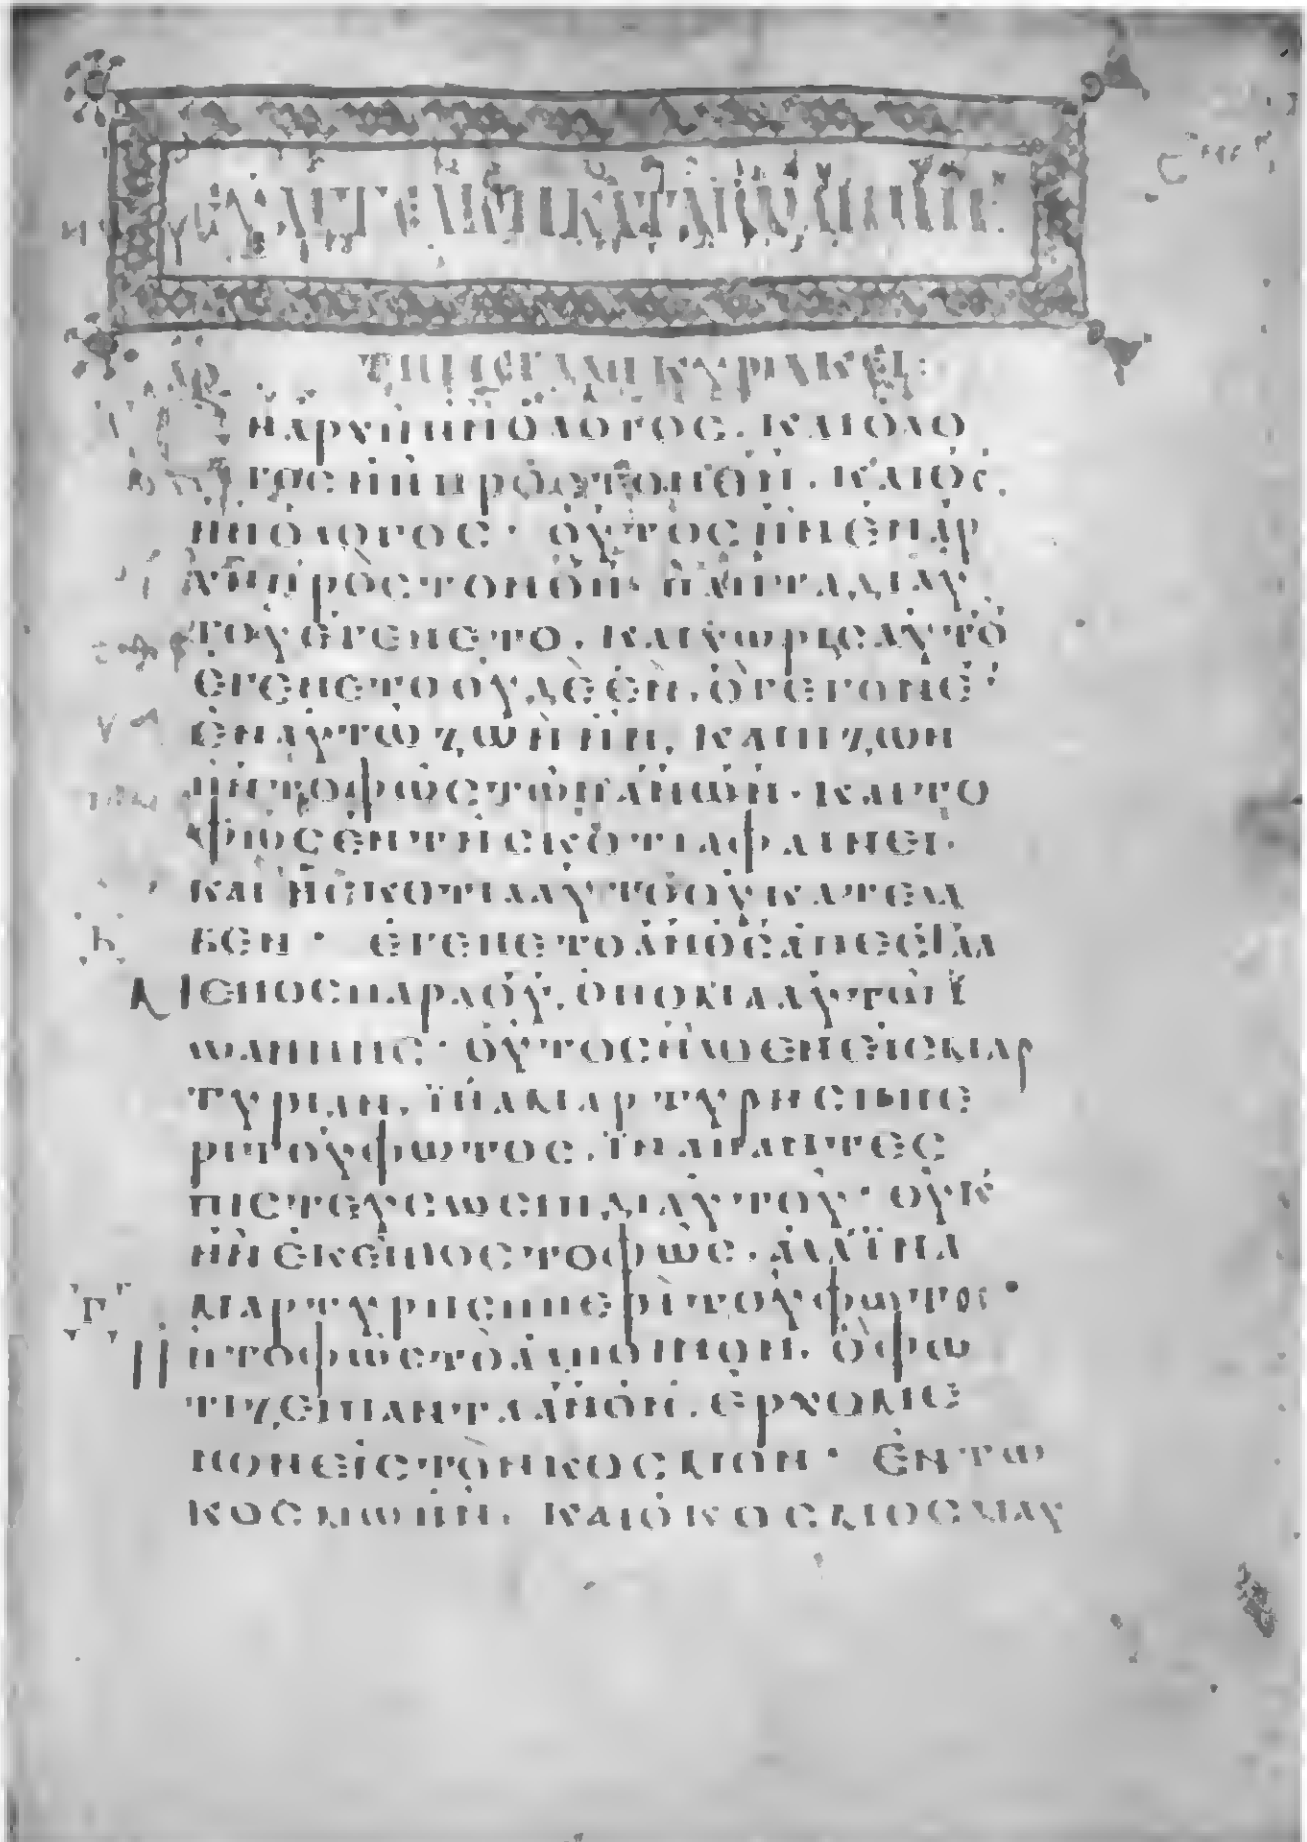 ΕΥΑΓΓΕΛΙΟΝ ΚΑΤΑ ΙΩΑΝΝΗΝ:
ΤΗ ΜΕΓΑΛΗ ΚΥΡΙΑΚΕΙ:
ΝΑΡΧΗΗΝΟΛΟΓΟΣ. ΚΑΙΟΛΟ
ΓΟΣΗΝΠΡΟΣΤΟΝΘΝ. ΚΑΙΘΣ
ΗΝΟΛΟΓΟΣ· ΟΥΤΟΣΗΝΕΝΑΡ
ΧΗΠΡΟΣΤΟΝΘΝ· ΠΑΝΤΑΔΙΑΥ
ΤΟΥΕΓΕΝΕΤΟ. ΚΑΙΧΩΡΙΣΑΥΤΟΥ
ΕΓΕΝΕΤΟΟΥΔΕΕΝ. ΟΓΕΓΟΝΕ·
ΕΝΑΥΤΩΖΩΗΗΝ. ΚΑΙΗΖΩΗ
ΗΝΤΟΦΩΣΤΩΝΑΝΩΝ· ΚΑΙΤΟ
ΦΩΣΕΝΤΗΣΚΟΤΙΑΦΑΙΝΕΙ·
ΚΑΙΗΣΚΟΤΙΑΑΥΤΟΟΥΚΑΤΕΛΑ
ΒΕΝ· ΕΓΕΝΕΤΟΑΝΟΣΑΠΕΣΤΑΛ
ΜΕΝΟΣΠΑΡΑΘΥ. ΟΝΟΜΑΑΥΤΩΪ
ΩΑΝΝΗΣ· ΟΥΤΟΣΗΛΘΕΝΕΙΣΜΑΡ
ΤΥΡΙΑΝ. ΪΝΑΜΑΡΤΥΡΗΣΗΠΕ
ΡΙΤΟΥΦΩΤΟΣ. ΪΝΑΠΑΝΤΕΣ
ΠΙΣΤΕΥΣΩΣΙΝΔΙΑΥΤΟΥ· ΟΥΚ
ΗΝΕΚΕΙΝΟΣΤΟΦΩΣ. ΑΛΛΪΝΑ
ΜΑΡΤΥΡΗΣΗΠΕΡΙΤΟΥΦΩΤΟΣ·
ΗΝΤΟΦΩΣΤΟΑΛΗΘΙΝΟΝ. ΟΦΩ
ΤΙΖΕΙΠΑΝΤΑΑΝΟΝ. ΕΡΧΟΜΕ
ΝΟΝΕΙΣΤΟΝΚΟΣΜΟΝ· ΕΝΤΩ
ΚΟΣΜΩΗΝ. ΚΑΙΟΚΟΣΜΟΣΔΙΑΥ